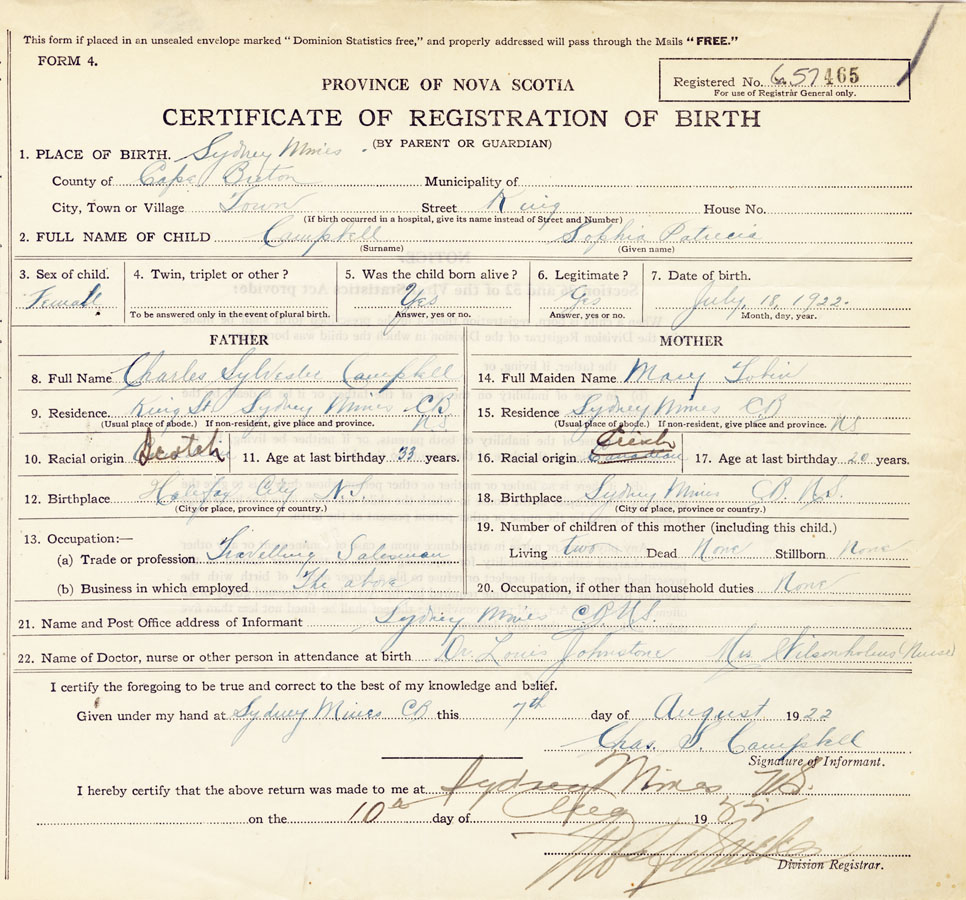 This form if placed in an unsealed envelope marked "Dominion Statistics free," and properly addressed will pass through the Mails "FREE."
FORM 4.
Registered No. 657465
For use of Registrar General only.
PROVINCE OF NOVA SCOTIA
CERTIFICATE OF REGISTRATION OF BIRTH
(BY PARENT OR GUARDIAN)
1. PLACE OF BIRTH. Sydney Mines
County of Cape Breton Municipality of
City, Town or Village Town Street King House No.
(If birth occurred in a hospital, give its name instead of Street and Number)
2. FULL NAME OF CHILD Campbell Sophia Patricia
(Surname) (Given name)
3. Sex of child. 4. Twin, triplet or other? 5. Was the child born alive? 6. Legitimate? 7. Date of birth.
Female Yes Yes July, 18, 1922.
To be answered only in the event of plural birth. Answer, yes or no. Answer, yes or no. Month, day, year.
FATHER MOTHER
8. Full Name Charles Sylvester Campbell 14. Full Maiden Name Mary Tobin
9. Residence. King St. Sydney Mines CB NS 15. Residence Sydney Mines CB NS
(Usual place of abode.) If non-resident, give place and province. (Usual place of abode.) If non-resident, give place and province.
10. Racial origin Scotch 11. Age at last birthday 33 years. 16. Racial origin Canadian Irish 17. Age at last birthday 20 years.
12. Birthplace Halifax City N.S. 18. Birthplace Sydney Mines CB. N.S.
(City or place, province or country.) (City or place, province or country.)
13. Occupation:— 19. Number of children of this mother (including this child.)
(a) Trade or profession Travelling Salesman Living two Dead None Stillborn None
(b) Business in which employed The above 20. Occupation, if other than household duties None
21. Name and Post Office address of Informant Sydney Mines C.B. N.S.
22. Name of Doctor, nurse or other person in attendance at birth Dr. Louis Johnstone Mrs (Nurse)
I certify the foregoing to be true and correct to the best of my knowledge and belief.
Given under my hand at Sydney Mines CB this 7th day of August 1922
Chas. S. Campbell
Signature of Informant.
I hereby certify that the above return was made to me at Sydney Mines N.S.
on the 10th day of Aug 1922
Division Registrar.